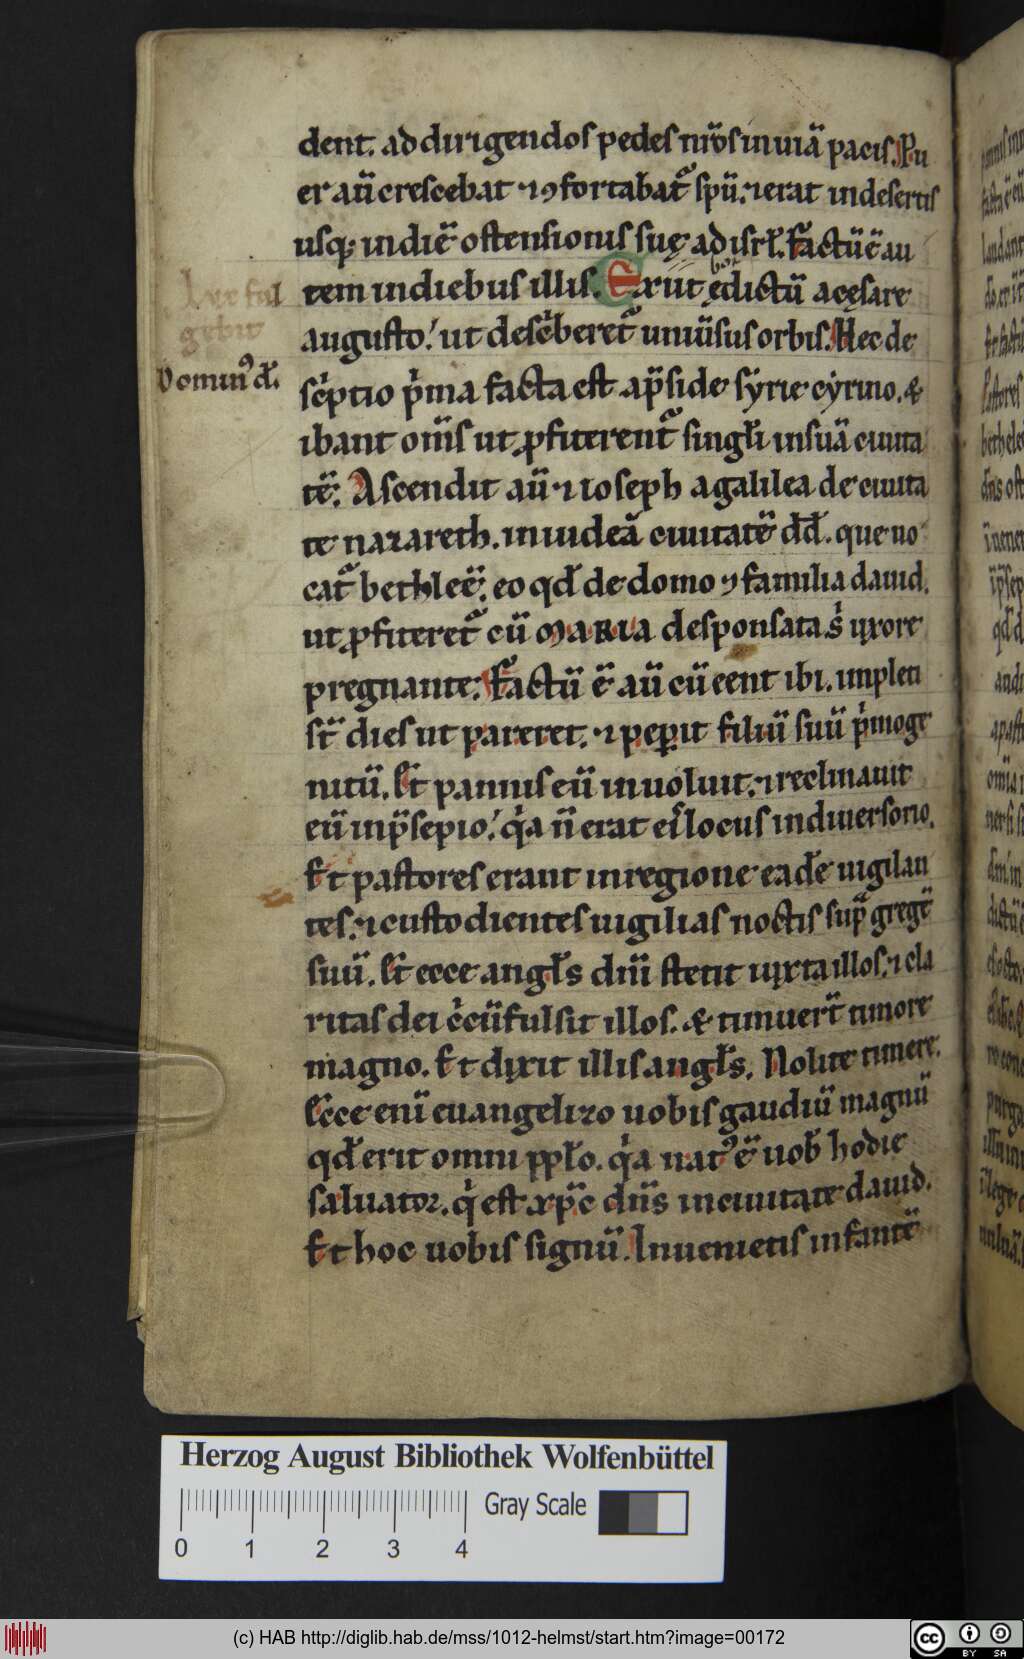 dent. ad dirigendos pedes nr̄os in uiā pacis. Pu
er aū crescebat ⁊ ꝯfortabat᷑ spū. ⁊ erat in desertis
usq; in diē ostensionis suę ad isrl̄. Factū ē au
tem in diebus illis. Exiit ędictū a cęsare
augusto. ut desc̓beret᷑ uniūsus orbis. Hec de
sc̓ptio p̓ma facta est ap̄side syrie cyrino. &
ibant om̄s ut ꝓfiterent᷑ singl̄i in suā ciuita
tē. Ascendit aū ⁊ ioseph a galilea de ciuita
te nazareth. in iudeā ciuitatē dd̄. que uo
cat᷑ bethleē. eo qd̄ de domo ⁊ familia dauid.
ut ꝓfiteret᷑ cū MARIA desponsata s̓ uxore
pregnante. Factū ē aū cū eent ibi. impleti
st̄ dies ut pareret. ⁊ peꝑit filiū suū p̓moge
nitū. Et pannis eū inuoluit. ⁊ reclinauit
eū in p̄sepio. q̓a n̄ erat eis locus in diuersorio.
Et pastores erant in regione eadē uigilan
tes. ⁊ custodientes uigilias noctis sup̄ gregē
suū. Et ecce angl̄s dn̄i stetit iuxta illos. ⁊ cla
ritas dei c̓cūfulsit illos. & timuert̄ timore
magno. Et dixit illis angl̄s. Nolite timere.
Ecce eni̅ euangelizo uobis gaudiū magnū
qd̄ erit omni ppl̄o. q̓a natꝰ ē uob̄ hodie
saluator. q̓ est xp̄c dn̄s in ciuitate dauid.
Et hoc uobis signū. Inuenietis infantē
Lux ful
gebit
Dominꝰ d̄.
Herzog August Bibliothek Wolfenbüttel
Gray Scale
0 1 2 3 4
(c) HAB http://diglib.hab.de/mss/1012-helmst/start.htm?image=00172
cc BY SA